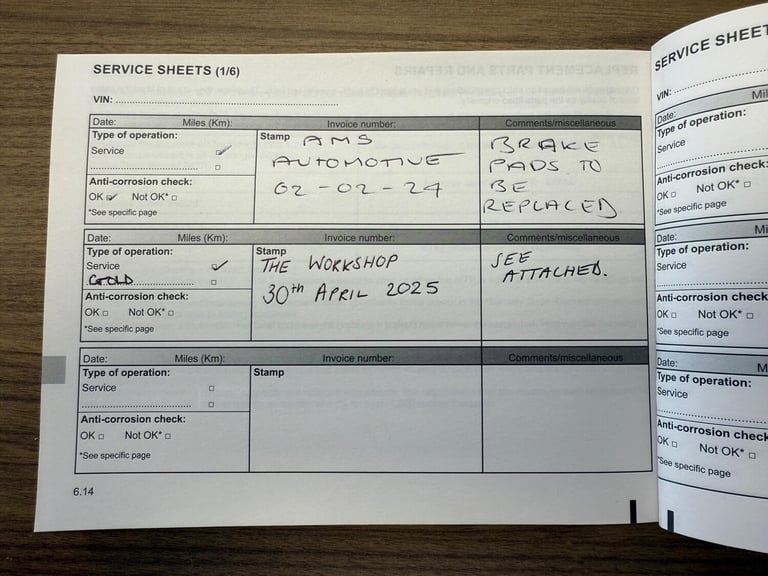 SERVICE SHEETS (1/6)
VIN:
Date: Miles (Km): Invoice number: Comments/miscellaneous
Type of operation:
Service
Stamp
AMS
AUTOMOTIVE
02-02-24
BRAKE
PADS TO
BE
REPLACED
Anti-corrosion check:
OK Not OK*
*See specific page
Date: Miles (Km): Invoice number: Comments/miscellaneous
Type of operation:
Service
GOLD
Stamp
THE WORKSHOP
30th APRIL 2025
SEE
ATTACHED.
Anti-corrosion check:
OK Not OK*
*See specific page
Date: Miles (Km): Invoice number: Comments/miscellaneous
Type of operation:
Service
Stamp
Anti-corrosion check:
OK Not OK*
*See specific page
6.14
SERVICE SHEET
VIN:
Date: Mil
Type of operation:
Service
Anti-corrosion check
OK Not OK*
*See specific page
Date: Mi
Type of operation:
Service
Anti-corrosion check
OK Not OK*
*See specific page
Date: M
Type of operation:
Service
Anti-corrosion check
OK Not OK*
*See specific page